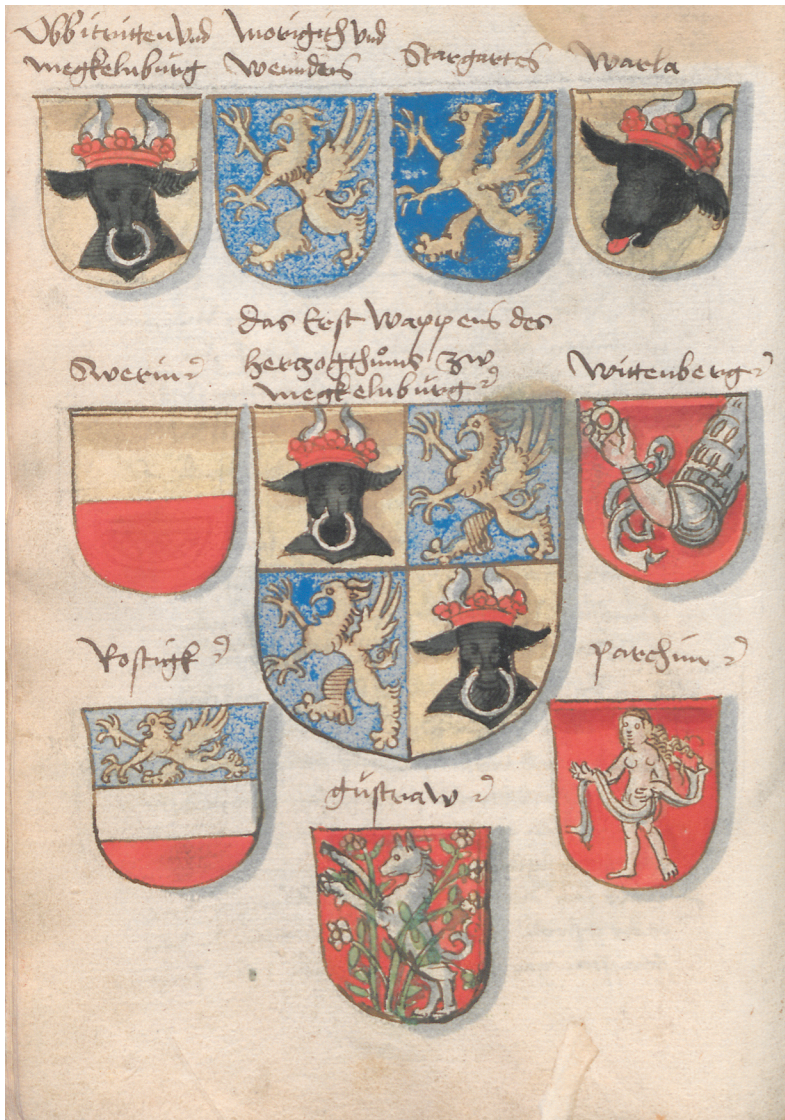 Obbitritten vnd
megkelnbürg
Morigith vnd
Wenndens
Stargartes
Warla
das Erst Wappens des
hertzogthůms zw
megkelnbürg
Swerin
Wittenberg
Rostigk
parchim
güstraw